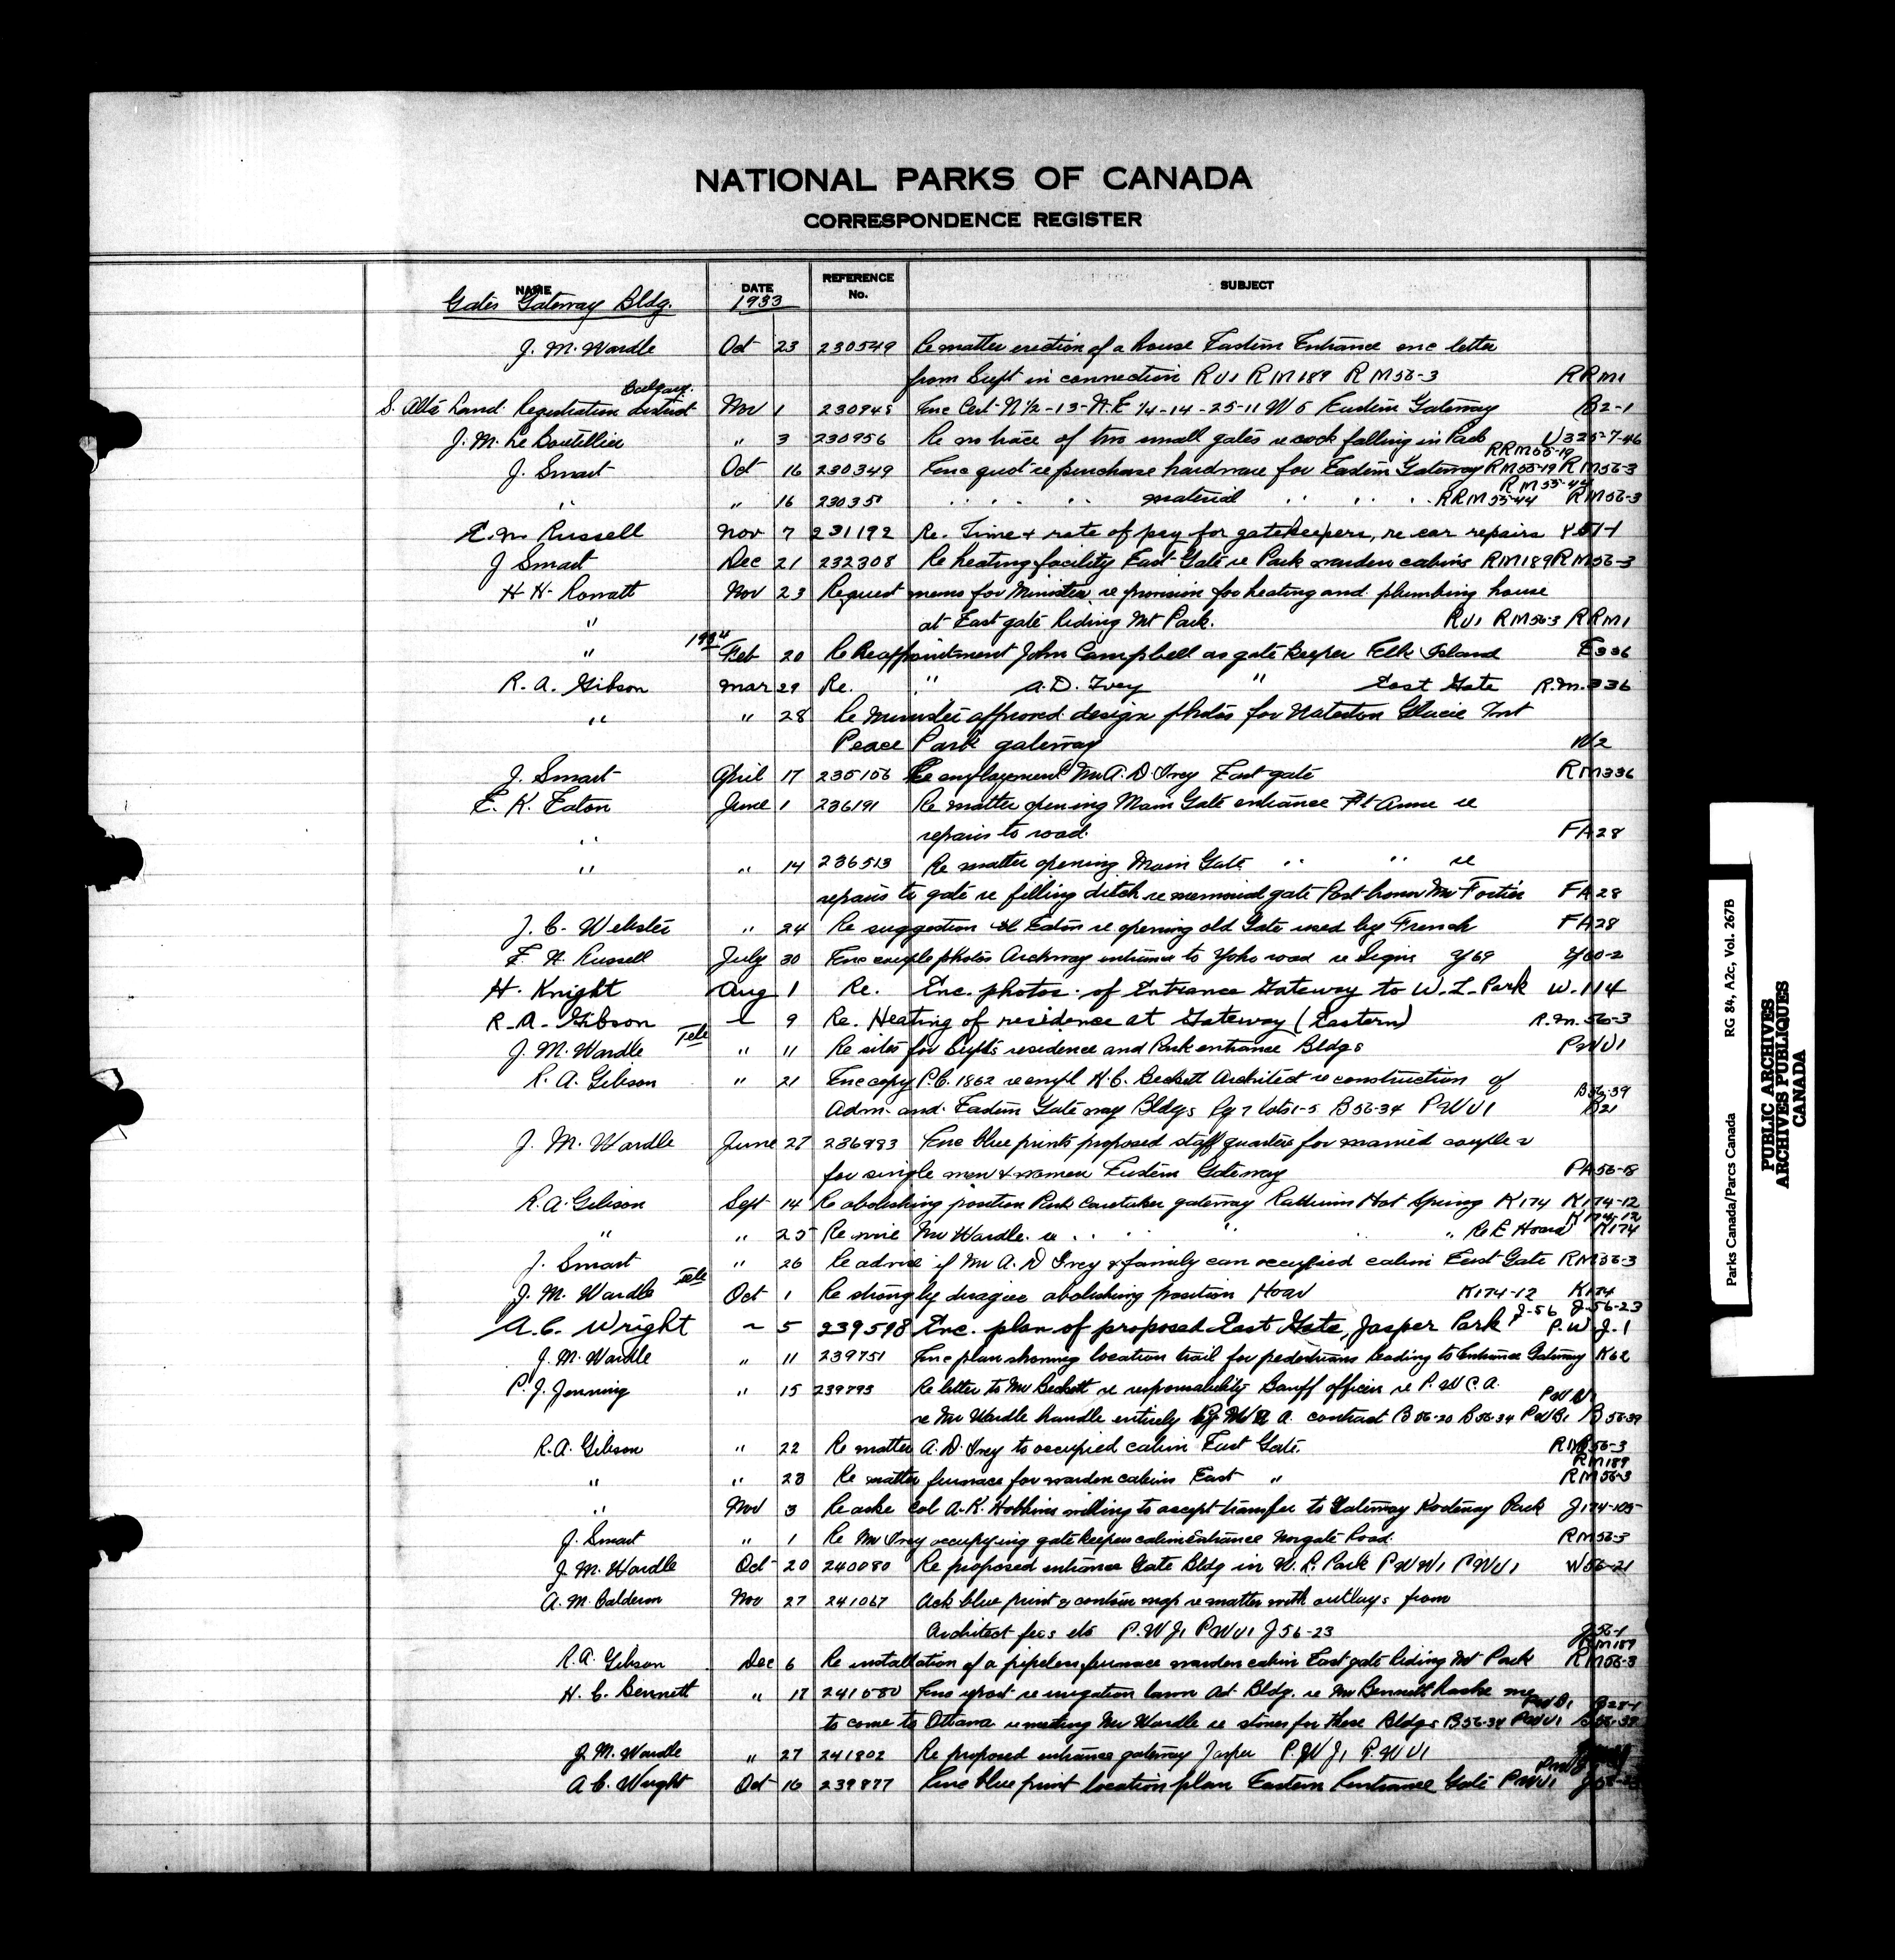 NATIONAL PARKS OF CANADA
CORRESPONDENCE REGISTER
NAME DATE REFERENCE No. SUBJECT
Gates Gateway Bldg. 1933
J. M. Wardle Oct 23 230549 Re matter erection of a house Eastern Entrance enc letter
from Supt in connection RU1 RM189 RM56-3 RRM1
Calgary.
S. Alta Land Registration district Nov 1 230948 Enc Cert N 1/2-13-N.E 1/4-14-25-11 W 5 Eastern Gateway B2-1
J. M. Le Boutellier " 3 230956 Re no trace of two small gates re cock falling in Park U325-7-46
RRM55-19
J. Smart Oct 16 230349 Enc quot re purchase hardware for Eastern Gateway RM55-19 RM56-3
RM55-44
" " 16 230350 " " " " material " " " RRM55-44 RM56-3
E. N. Russell Nov 7 231192 Re. Time & rate of pay for gatekeepers, re car repairs Y51-1
J Smart Dec 21 232308 Re heating facility East Gate re Park warden cabins RM189 RM56-3
H H. Rowatt Nov 23 Request memo for Minister re provision for heating and plumbing house
" at East gate Riding Mt Park. RU1 RM56-3 RRM1
1934
" Feb 20 Re Reappointment John Campbell as gate keeper Elk Island E336
R. A. Gibson Mar 29 Re. " A. D. Ivey " East Gate R.M.336
" " 28 Re Minister approved design photos for Waterton Glacier Int
Peace Park gateway W2
J. Smart April 17 235106 Re employment Mr A. D. Ivey East gate RM336
E. K. Eaton June 1 236191 Re matter opening Main Gate entrance Ft Anne re
" repairs to road. FA28
" " 14 236513 Re matter opening Main Gate " " re
repairs to gate re filling ditch re memorial gate Post honor Mr Fortier FA28
J. C. Webster " 24 Re suggestion Eaton re opening old Gate used by French FA28
E. H. Russell July 30 Enc couple photos Archway entrance to Yoho road re Signs Y69 Y60-2
H. Knight Aug 1 Re. Enc. photos of Entrance Gateway to W. L. Park W.114
R. A. Gibson " 9 Re. Heating of residence at Gateway (Eastern) R.M. 56-3
J. M. Wardle Tele " 11 Re sites for Supts residence and Park entrance Bldgs PWU1
R. A. Gibson " 21 Enc copy P.C. 1862 re empl H. C. Beckett Architect re construction of
B56-39
Adm. and Eastern Gateway Bldgs Pg 7 lots 1-5 B56-34 PWU1 B21
J. M. Wardle June 27 236983 Enc blue prints proposed staff quarters for married couple &
for single men & women Eastern Gateway PA56-18
R. A. Gibson Sept 14 Re abolishing position Park Caretaker gateway Radium Hot Spring K174 K174-12
K174-12
" " 25 Re wire Mr Wardle re " " " " Re E Hoar K174
J. Smart " 26 Re advise if Mr A. D Ivey & family can occupied cabin East Gate RM56-3
J. M. Wardle Tele Oct 1 Re strongly disagree abolishing position Hoar K174-12 K174
J-56 J-56-23
A. C. Wright " 5 239598 Enc. plan of proposed East Gate, Jasper Park P.W.J.1
J. M. Wardle " 11 239751 Enc plan showing location trail for pedestrians leading to Entrance Gateway K62
P. J. Jenning " 15 239793 Re letter to Mr Beckett re responsability Banff officer re P.W.C.A.
re Mr Wardle handle entirely contract B56-20 B56-34 PWB1 B56-39
R. A. Gibson " 22 Re matter A. D. Ivey to occupied cabin East Gate. RM56-3
RM189
" " 23 Re matter furnace for warden cabins East " RM56-3
" Nov 3 Re aske Col A. K. Hobbins willing to accept transfer to Gateway Kootenay Park J174-105
J. Smart " 1 Re Mr Ivey occupying gate keepers cabin Entrance Norgate Road. RM56-3
J. M. Wardle Oct 20 240080 Re proposed entrance Gate Bldg in W. L. Park PWW1 PWU1 W56-21
A. M. Calderon Nov 27 241067 Ack blue print & contour map re matter with outlays from
Architect fees etc P.WJ1 PWU1 J56-23 J56-1
RM189
R. A. Gibson Dec 6 Re installation of a pipeless furnace warden cabin East gate Riding Mt Park RM56-3
H. C. Bennett " 17 241580 Enc report re irrigation lawn Ad. Bldg. re Mr Bennett
PWB1 B28-1
to come to Ottawa re meeting Mr Wardle re stones for these Bldgs B56-34 PWU1 B56-39
J. M. Wardle " 27 241802 Re proposed entrance gateway Jasper P.WJ1 PWU1
A C. Wright Oct 16 239877 Enc blue print location plan Eastern Entrance Gate PWU1
Parks Canada/Parcs Canada RG 84, A2c, Vol. 267B
PUBLIC ARCHIVES
ARCHIVES PUBLIQUES
CANADA